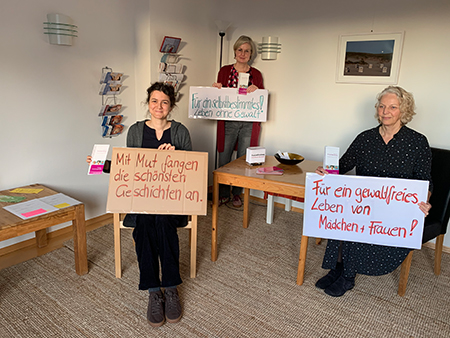 Für ein selbstbestimmtes
Leben ohne Gewalt!
Mit Mut fangen
die schönsten
Geschichten an.
Für ein gewaltfreies
Leben von
Mädchen + Frauen!